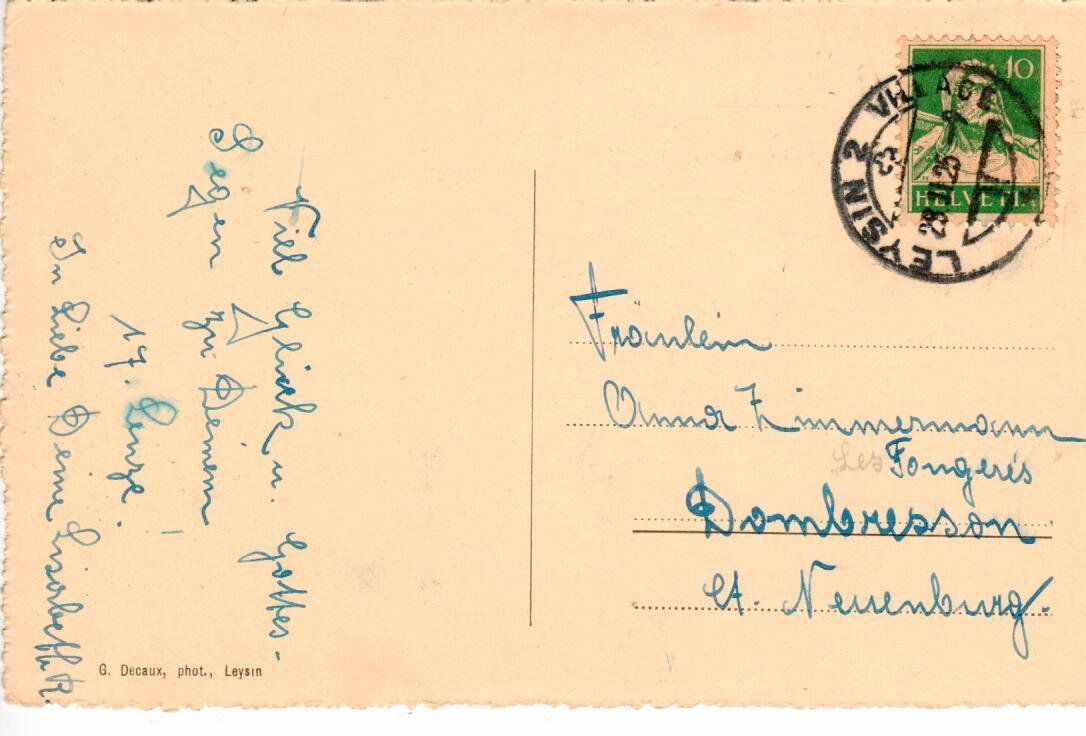 Viel Glück u. Gottes-
Segen zu Deinem
17. Lenze.
In Liebe Deine Lisabeth R.
G. Decaux, phot., Leysin
10
HELVETIA
LEYSIN 2 VILLAGE
Fräulein
Anna Zimmermann
Les Fougerès
Dombresson
Ct. Neuenburg.